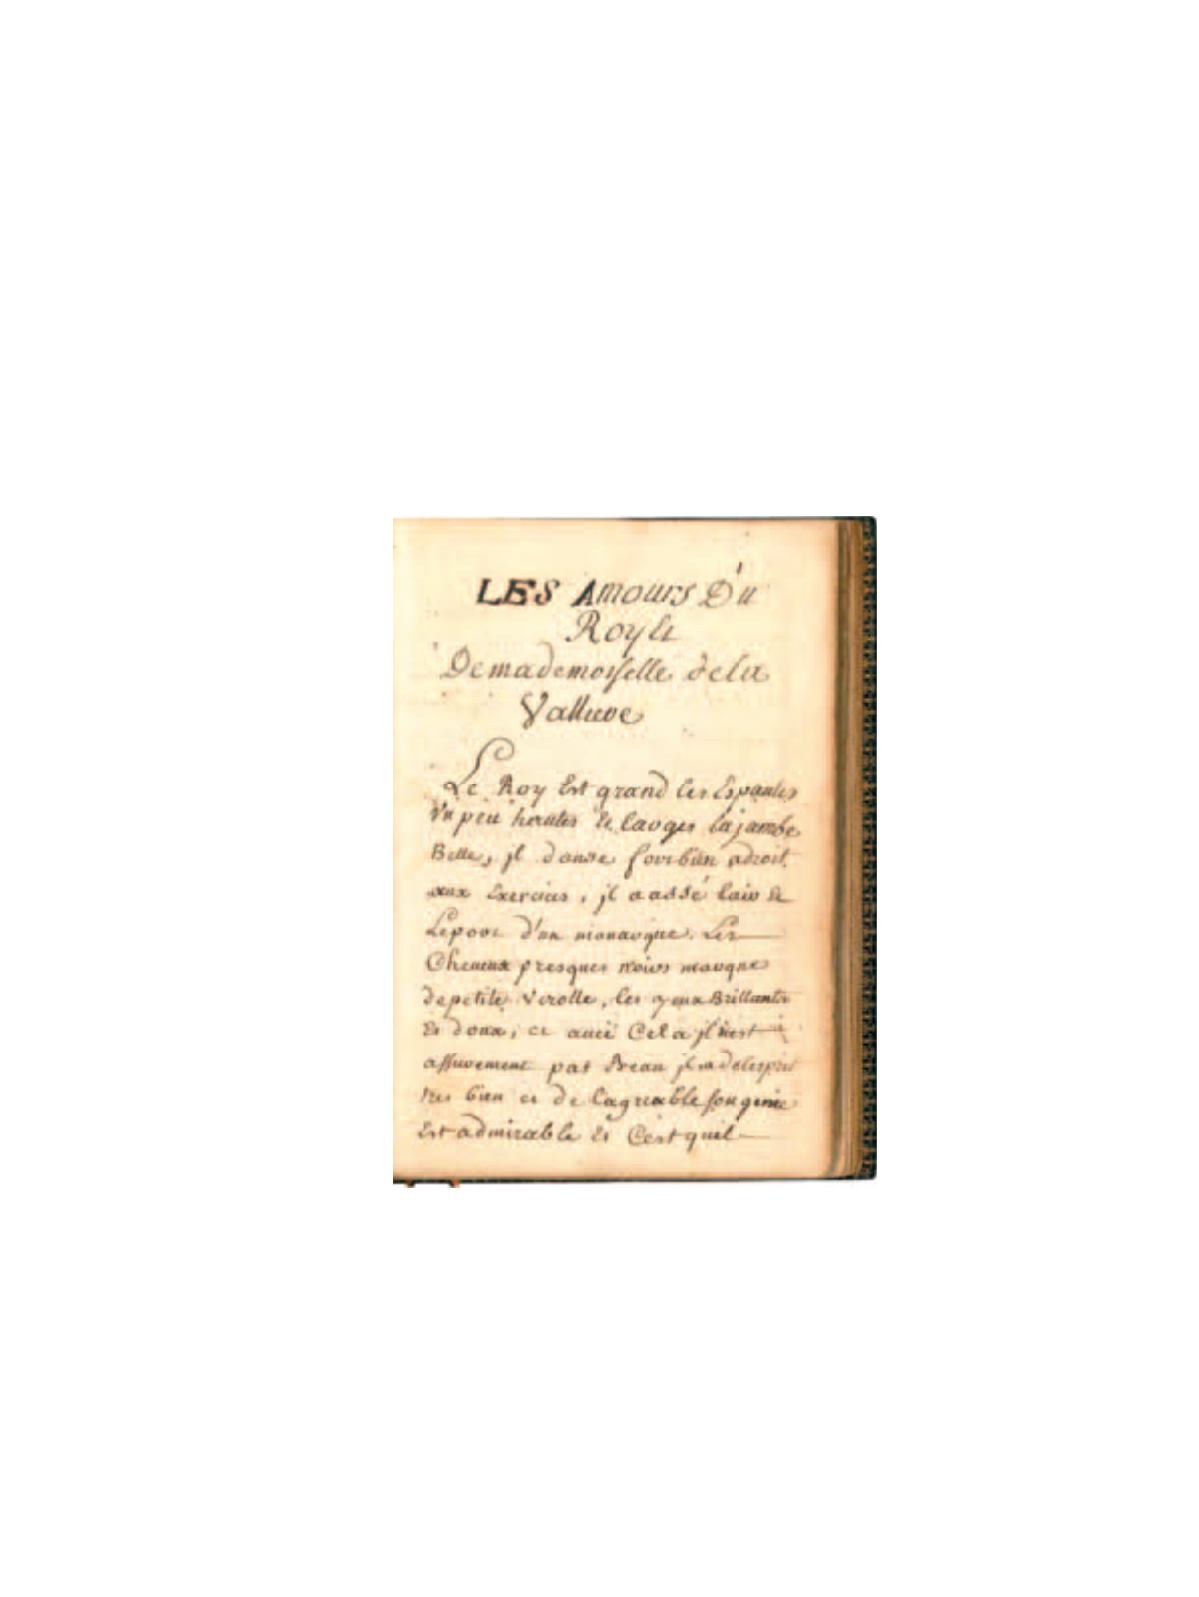 LES Amours Du
Roy Et
De mademoiselle de la
Valliere
Le Roy Est grand les Espaules
Un peu hautes Et larges la jambe
Belle, jl danse fort bien adroit
aux Exercices, jl a assé lair Et
Leport d'un monarque. Les
Cheueux presques noirs marque
de petite verolle, les yeux Brillants
Et doux, et auec Cela jl nest
assurement pas Beau jl a delesprit
tres bien et de lagreable son genie
Est admirable Et Cest quil